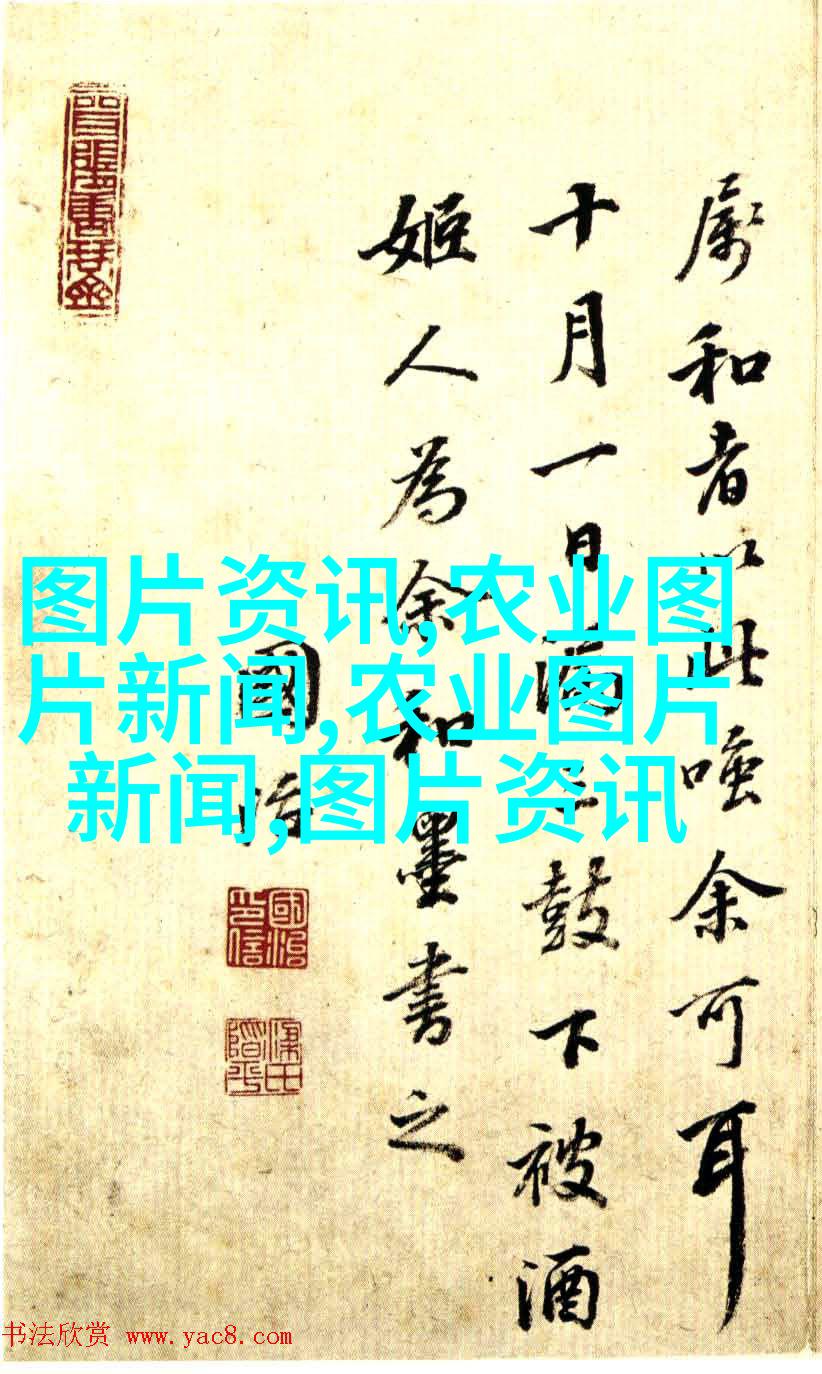 属和者以此嗤余可耳
十月一日漏二鼓下被酒
姬人為余和墨書之
國治
图片资讯,农业图
片新闻,农业图片
新闻,图片资讯
國治
印信
书法欣赏 www.yac8.com